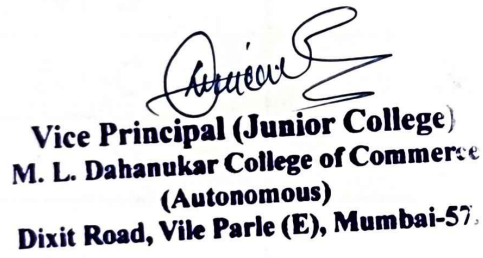 Vice Principal (Junior College)
M. L. Dahanukar College of Commerce
(Autonomous)
Dixit Road, Vile Parle (E), Mumbai-57.